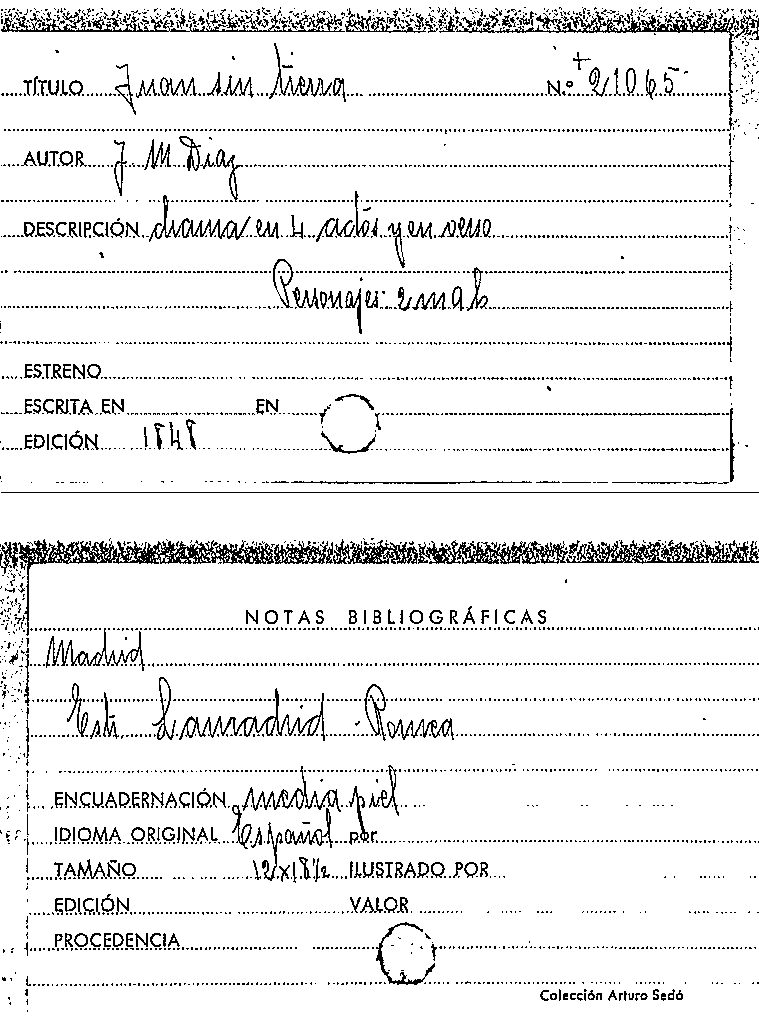 TÍTULO Juan sin tierra N.º + 21065
AUTOR J M Diaz
DESCRIPCIÓN drama en 4 actos y en verso
Personajes: 2 m 9 h
ESTRENO
ESCRITA EN EN
EDICIÓN 1848
NOTAS BIBLIOGRÁFICAS
Madrid
Estr. Lamadrid - Romea
ENCUADERNACIÓN media piel
IDIOMA ORIGINAL Español por
TAMAÑO 12x18½ ILUSTRADO POR
EDICIÓN VALOR
PROCEDENCIA
Colección Arturo Sedó